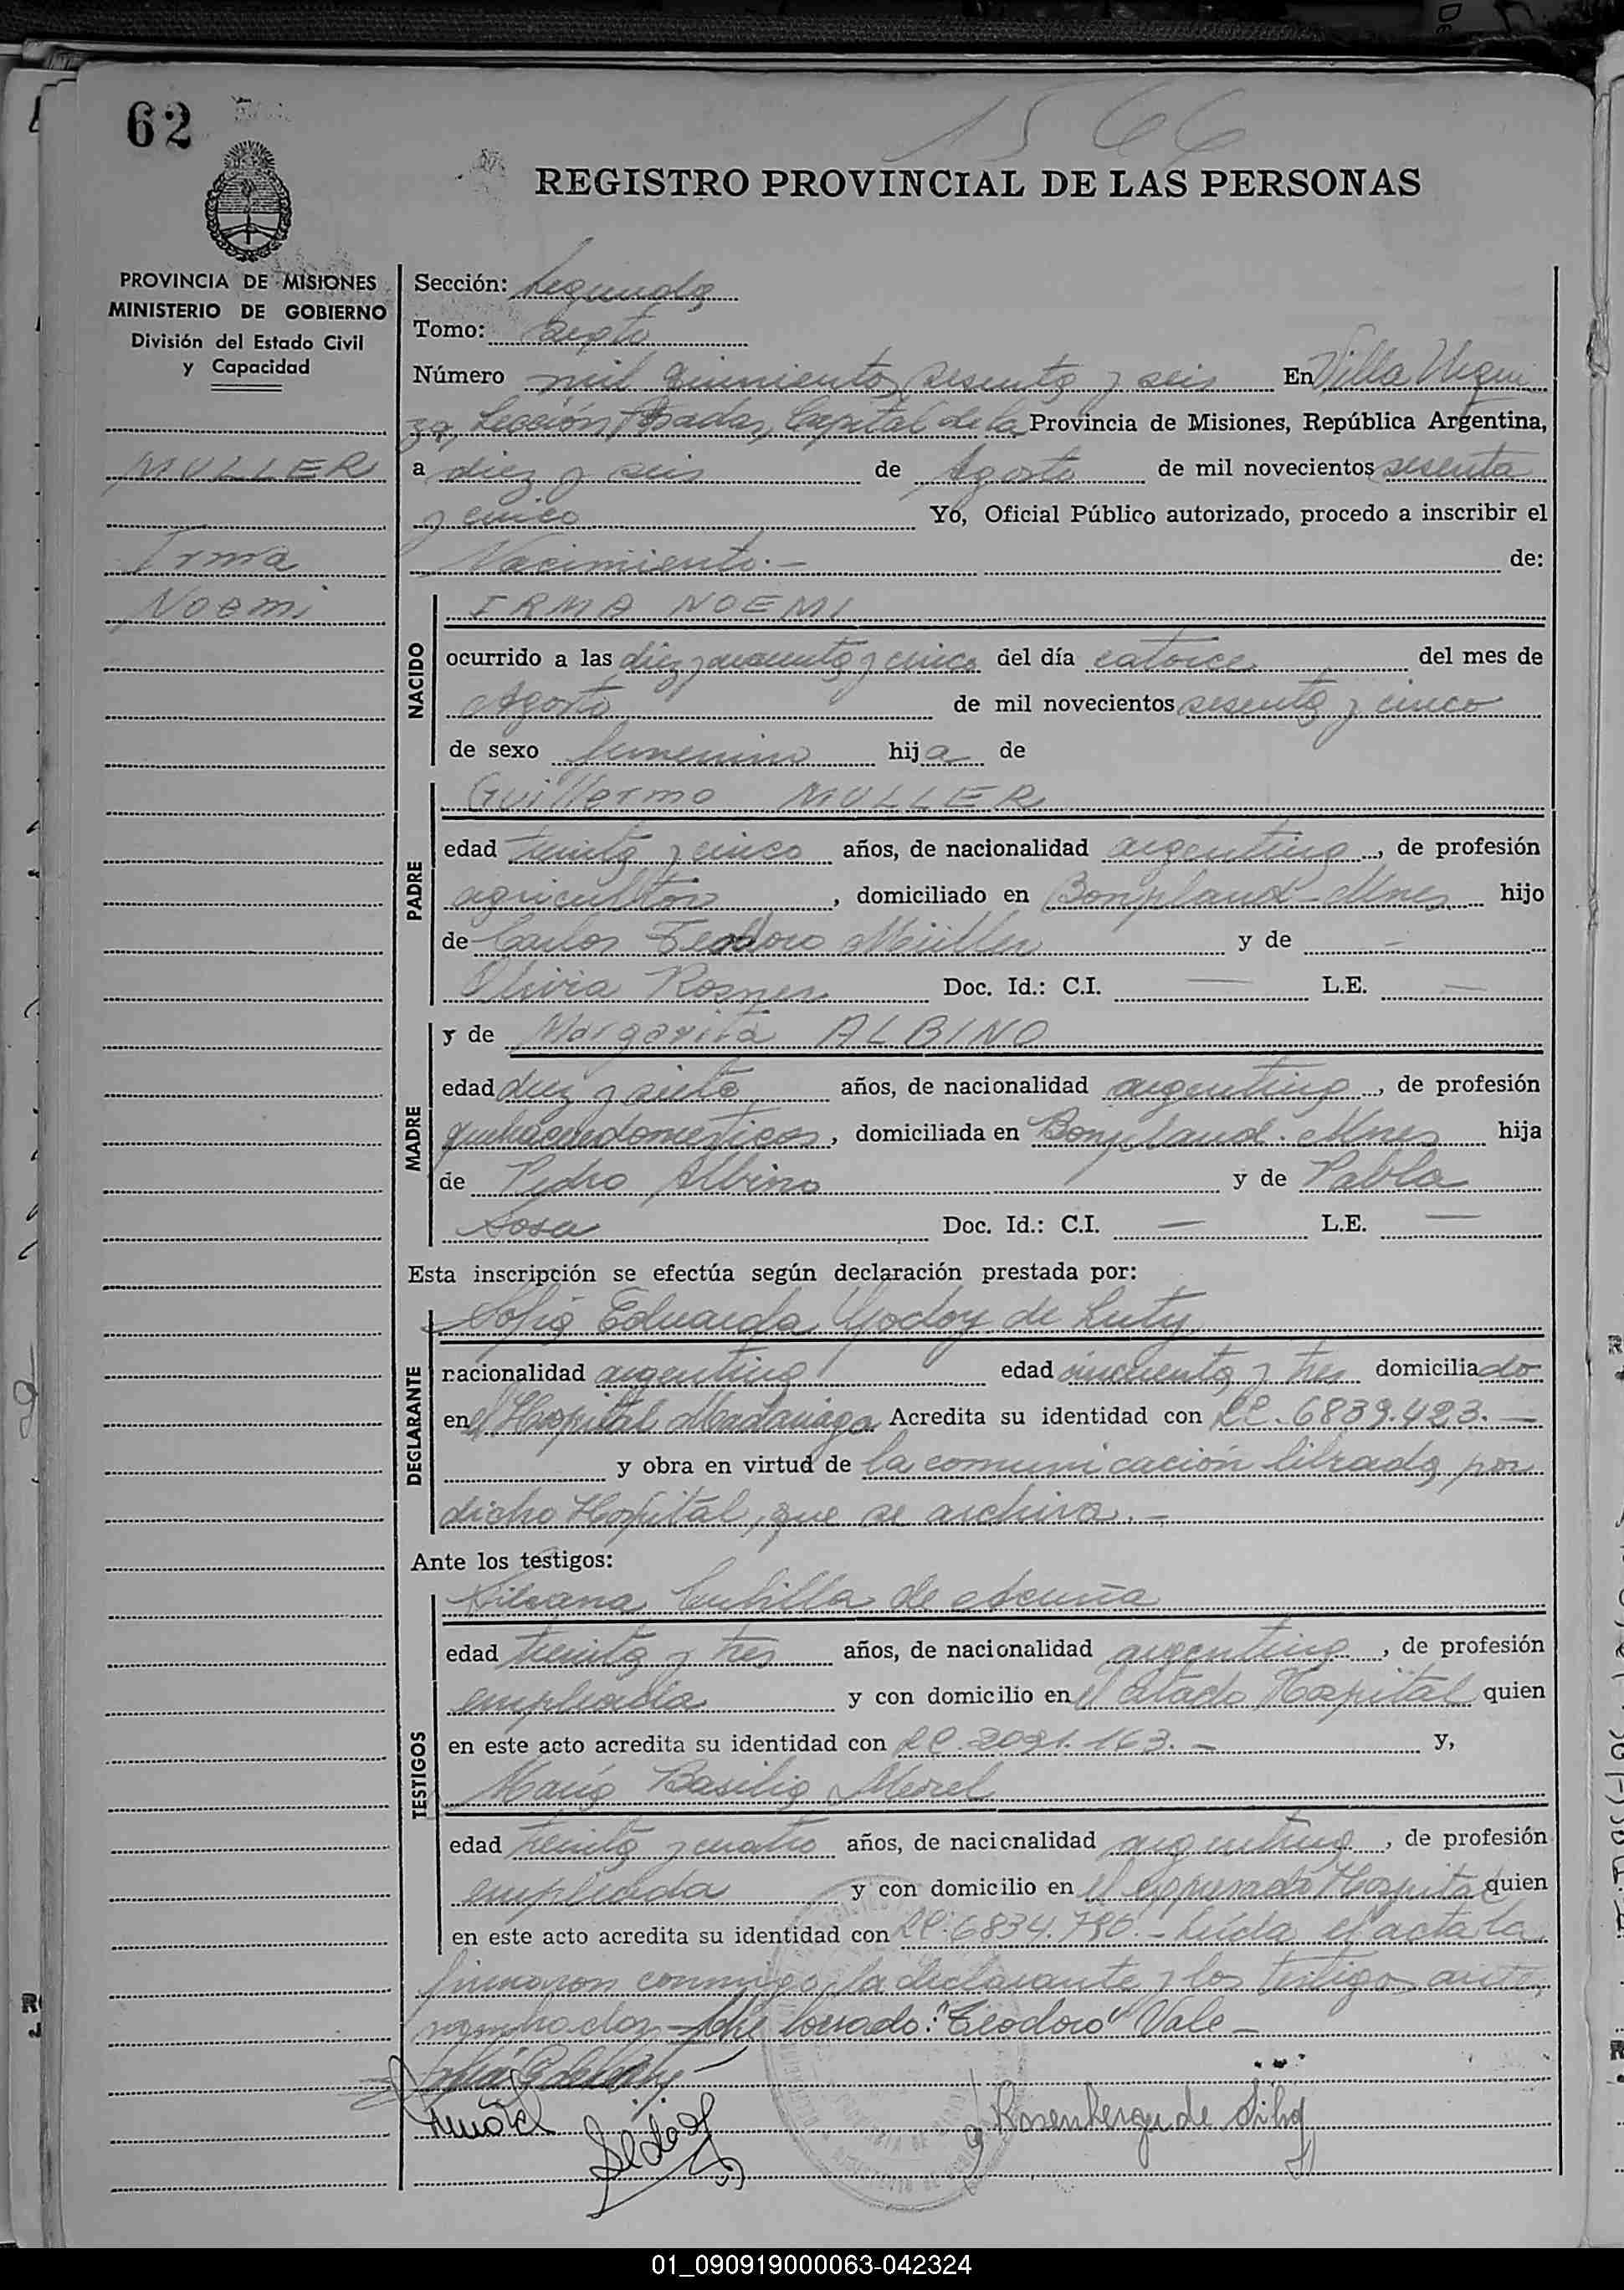 62
1566
REGISTRO PROVINCIAL DE LAS PERSONAS
PROVINCIA DE MISIONES
MINISTERIO DE GOBIERNO
División del Estado Civil
y Capacidad
MULLER
Irma
Noemi
Sección: Segunda
Tomo: Sexto
Número mil quinientos sesenta y seis En Villa Urqui
za, Sección Posadas, Capital de la Provincia de Misiones, República Argentina,
a diez y seis de Agosto de mil novecientos sesenta
y cinco Yo, Oficial Público autorizado, procedo a inscribir el
Nacimiento.- de:
NACIDO
IRMA NOEMI
ocurrido a las diez y cincuenta y cinco del día catorce del mes de
Agosto de mil novecientos sesenta y cinco
de sexo femenino hija de
PADRE
Guillermo MULLER
edad treinta y cinco años, de nacionalidad argentina, de profesión
agricultor, domiciliado en Bonpland-Mnes. hijo
de Carlos Teodoro Müller y de -
Olivia Rosner Doc. Id.: C.I. — L.E. —
MADRE
y de Margarita ALBINO
edad diez y siete años, de nacionalidad argentina, de profesión
quehaceres domesticos, domiciliada en Bonpland. Mnes hija
de Pedro Albino y de Pabla
Sosa Doc. Id.: C.I. — L.E. —
Esta inscripción se efectúa según declaración prestada por:
DECLARANTE
Sofia Eduarda Godoy de Luty
nacionalidad argentina edad cincuenta y tres domiciliado
en el Hospital Madariaga Acredita su identidad con LC. 6839.423.—
y obra en virtud de la comunicación librada por
dicho Hospital, que se archiva.-
Ante los testigos:
TESTIGOS
Cubilla de Acuña
edad treinta y tres años, de nacionalidad argentina, de profesión
empleada y con domicilio en el citado Hospital quien
en este acto acredita su identidad con LC. 2021.163.- y,
María Basilia Merel
edad treinta y cuatro años, de nacionalidad argentina, de profesión
empleada y con domicilio en el expresado Hospital quien
en este acto acredita su identidad con LC. 6834.780.- Leída el acta la
firmaron conmigo, la declarante y los testigos ante,
nombrados.- S/Re borrado: "Teodoro" Vale -
Rosenberger de Silva
01_090919000063-042324